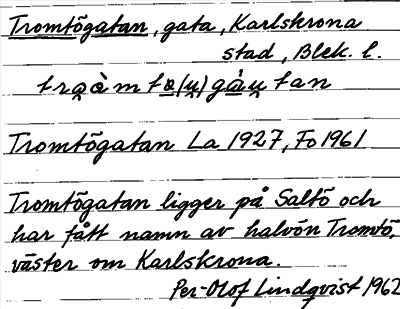 Tromtögatan, gata, Karlskrona
stad, Blek. l.
Tromtögatan La 1927, Fo 1961
Tromtögatan ligger på Saltö och
har fått namn av halvön Tromtö,
väster om Karlskrona.
Per-Olof Lindqvist 1962